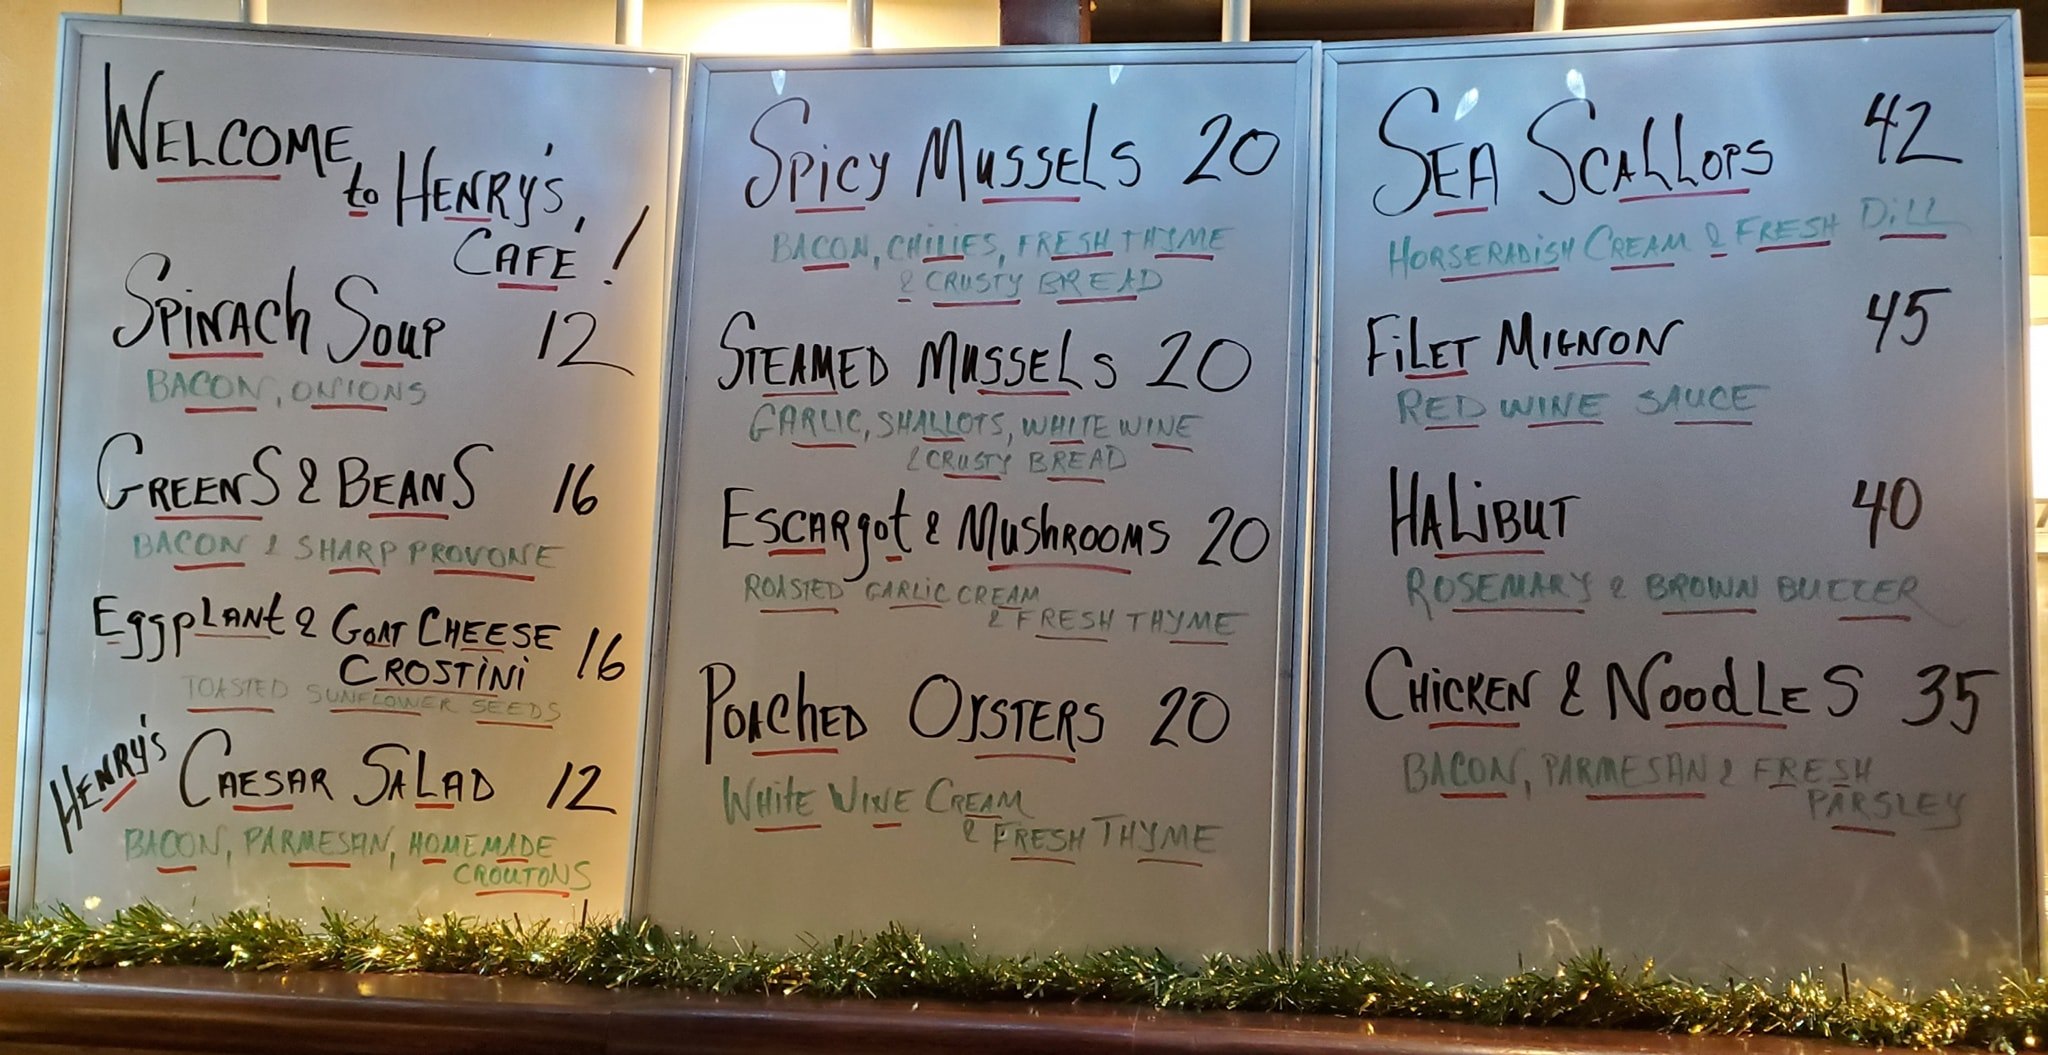 WELCOME
to HENRY'S
CAFÉ!
SPINACh SOUP 12
BACON, ONIONS
GREENS & BEANS 16
BACON & SHARP PROVONE
EggpLANt & GOAT CHEESE
CROSTiNi 16
TOASTED SUNFLOWER SEEDS
HENRY'S CAESAR SALAD 12
BACON, PARMESAN, HOMEMADE
CROUTONS
SPICY MUSSELS 20
BACON, CHILIES, FRESH THYME
& CRUSTY BREAD
STEAMED MUSSELS 20
GARLIC, SHALLOTS, WHITE WINE
& CRUSTY BREAD
ESCARgot & MUShROOMS 20
ROASTED GARLIC CREAM
& FRESH THYME
POAChED OYSTERS 20
WHitE WINE CREAM
& FRESH THYME
SEA SCALLOPS 42
HORSERADISH CREAM & FRESH DiLL
FiLET MIGNON 45
RED WINE SAUCE
HALiBUT 40
ROSEMARY & BROWN BUTTER
CHiCKEN & NOODLES 35
BACON, PARMESAN & FRESH
PARSLEY